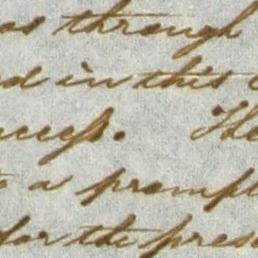 as through
d in this
uccess. The
a promp
for the pres